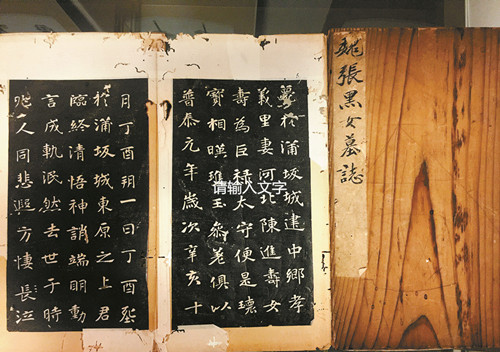 魏張黑女墓誌
薨於蒲坂城建中鄉孝
義里妻河北陳進壽女
壽為巨祿太守便是瓌
寶相暎瓊玉參差俱以
普泰元年歲次辛亥十
月丁酉朔一日丁酉葬
於蒲坂城東原之上君
臨終清悟神誚端明動
言成軌泯然去世于時
兆人同悲遐方悽長泣
请输入文字